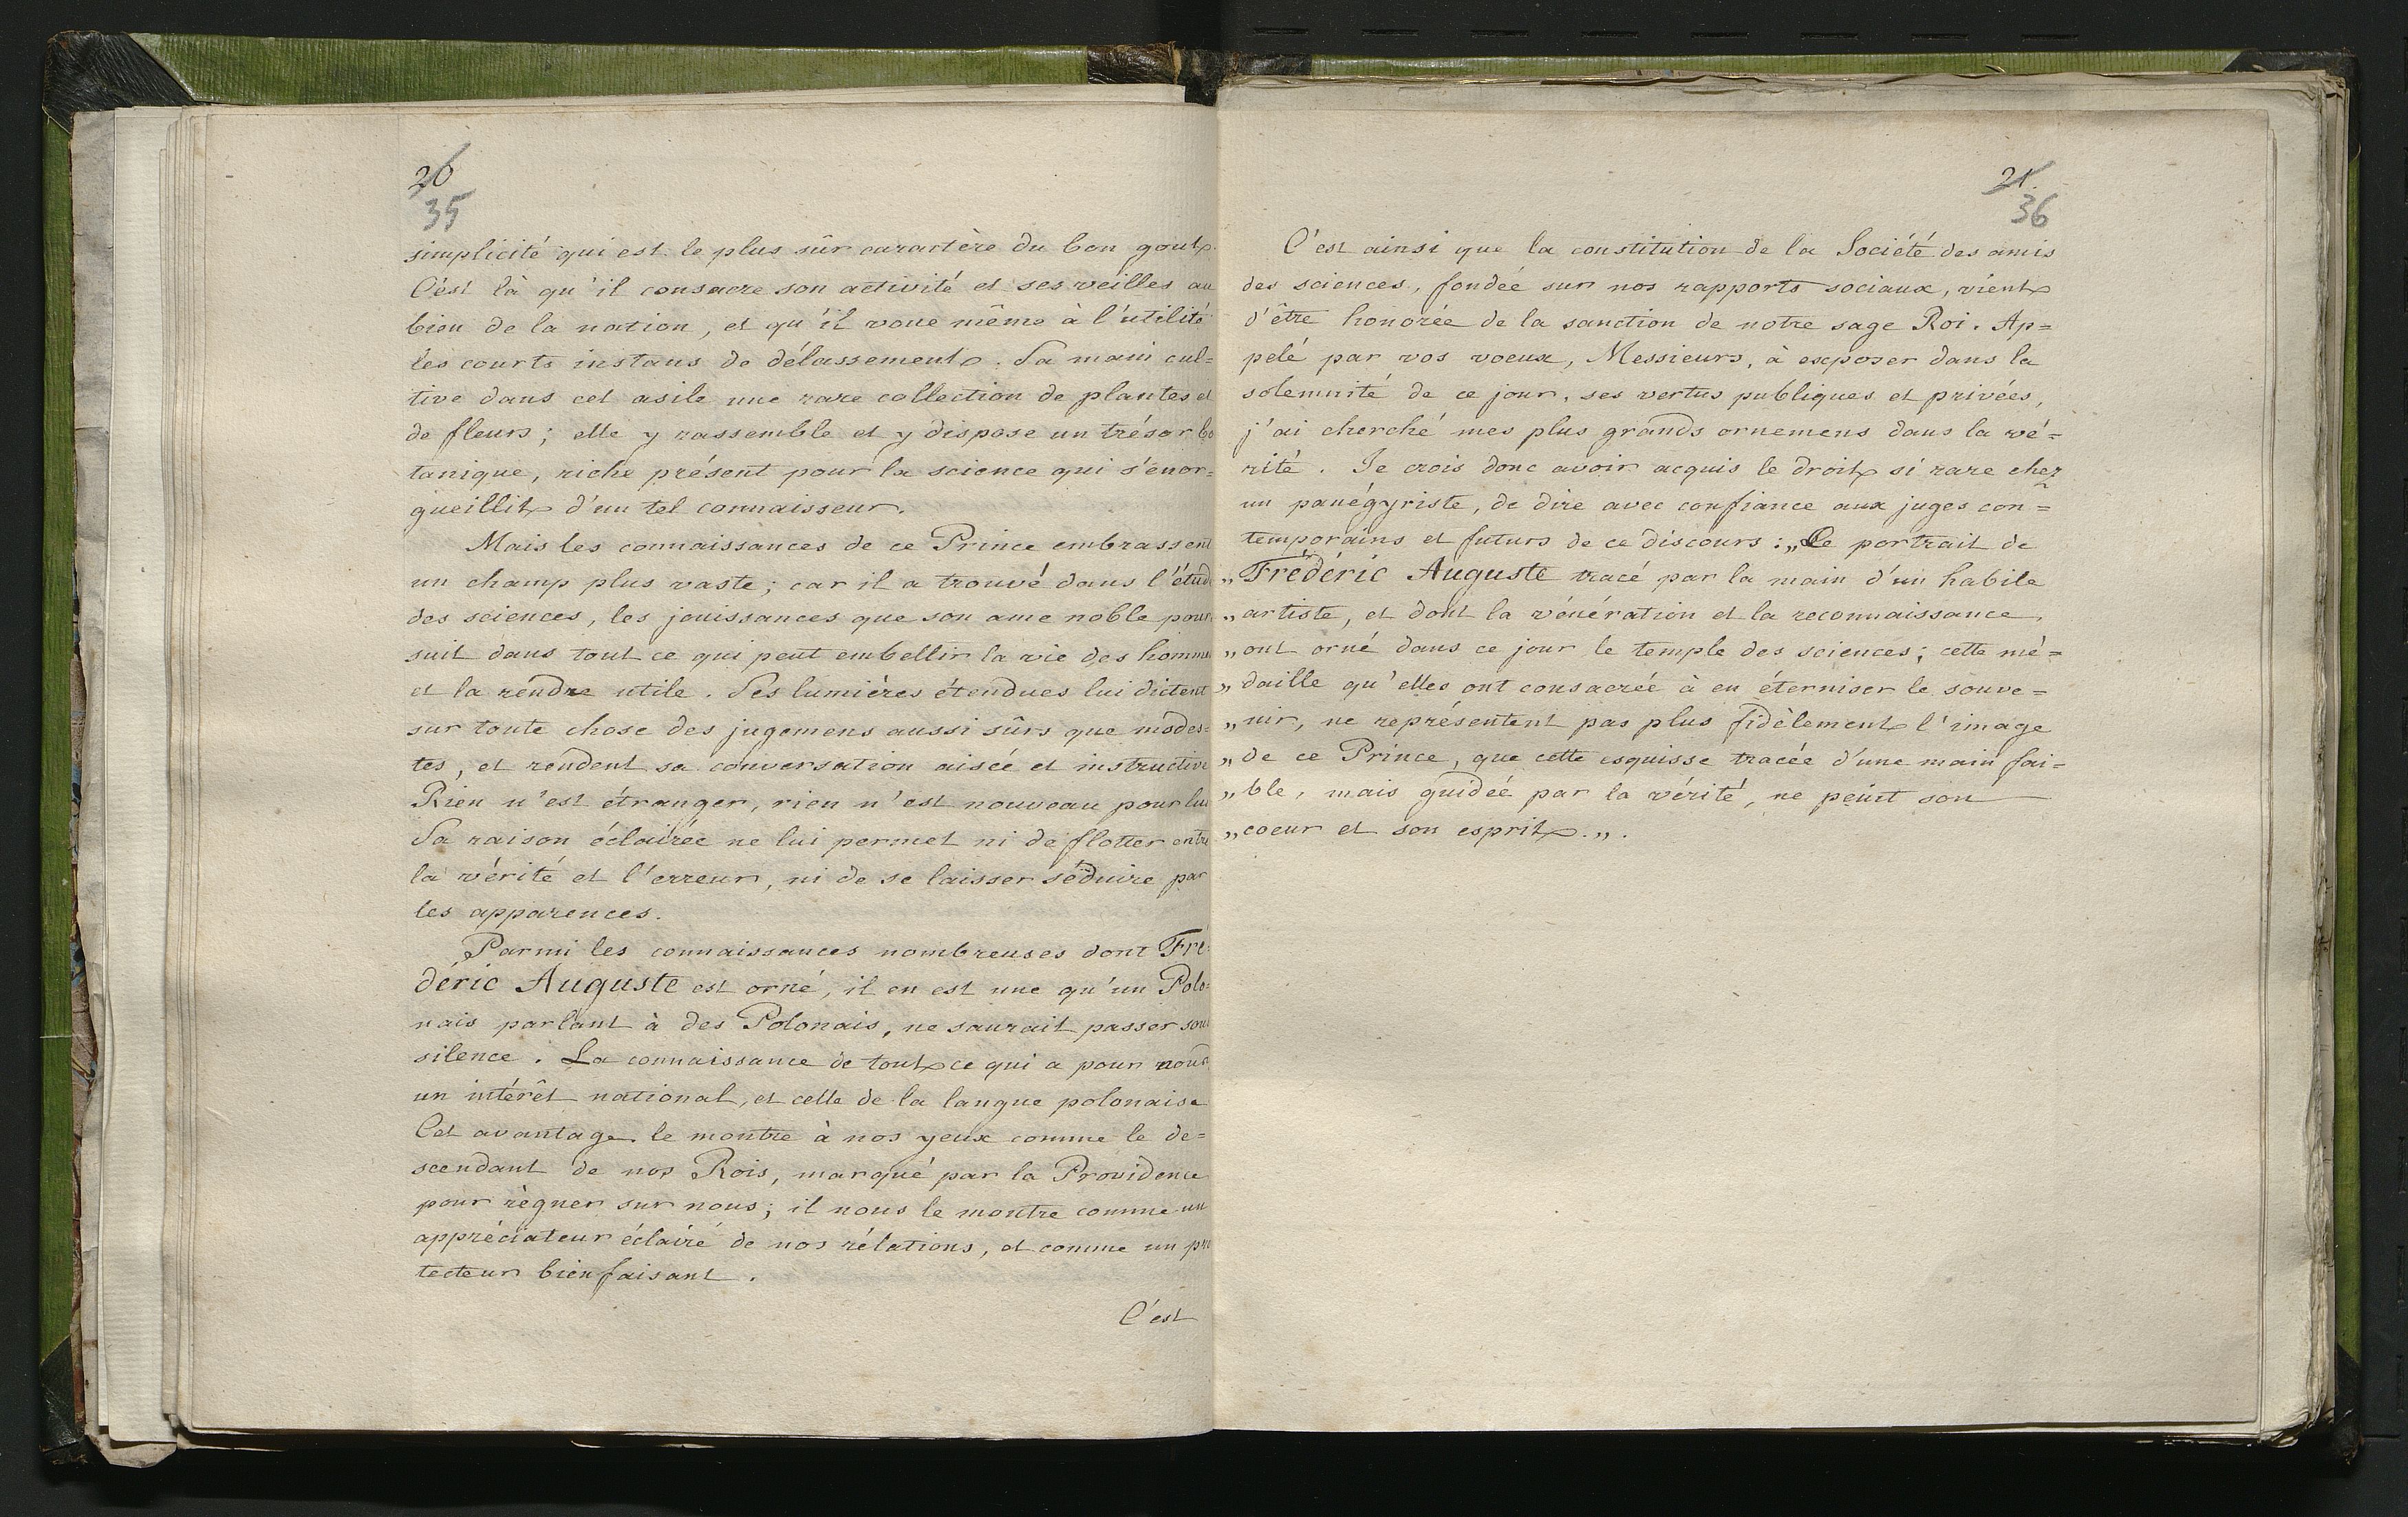 26
35
simplicité qui est le plus sûr caractère du bon gout.
C'est là qu'il consacre son activité et ses veilles au
bien de la nation, et qu'il voue même à l'utilité
les courts instans de délassement. Sa main cul=
tive dans cet asile une rare collection de plantes et
de fleurs; elle y rassemble et y dispose un trésor bo
tanique, riche présent pour la science qui s'énor=
gueillit d'un tel connaisseur.
Mais les connaissances de ce Prince embrassent
un champ plus vaste; car il a trouvé dans l'étude
des sciences, les jouissances que son ame noble pour
suit dans tout ce qui peut embellir la vie des hommes
et la rendre utile. Ses lumières étendues lui dictent
sur toute chose des jugemens aussi sûrs que modes=
tes, et rendent sa conversation aisée et instructive
Rien n'est étranger, rien n'est nouveau pour lui
Sa raison éclairée ne lui permet ni de flotter entre
la vérité et l'erreur, ni de se laisser séduire par
les apparences.
Parmi les connaissances nombreuses dont Fré=
déric Auguste est orné, il en est une qu'un Polo=
nais parlant à des Polonais, ne saurait passer sous
silence. La connaissance de tout ce qui a pour nous
un intérêt national, et celle de la langue polonaise
Cet avantage le montre à nos yeux comme le de=
scendant de nos Rois, marqué par la Providence
pour règner sur nous; il nous le montre comme un
appréciateur éclairé de nos rélations, et comme un pro
tecteur bienfaisant.
C'est
21.
36
C'est ainsi que la constitution de la Société des amis
des sciences, fondée sur nos rapports sociaux, vient
d'être honorée de la sanction de notre sage Roi. Ap=
pelé par vos voeux, Messieurs, à exposer dans la
solemnité de ce jour, ses vertus publiques et privées,
j'ai cherché mes plus grands ornemens dans la vé=
rité. Je crois donc avoir acquis le droit si rare chez
un panégyriste, de dire avec confiance aux juges con=
temporains et futurs de ce discours: „Le portrait de
„Frédéric Auguste tracé par la main d'un habile
„artiste, et dont la vénération et la reconnaissance
„ont orné dans ce jour le temple des sciences; cette mé=
„daille qu'elles ont consacrée à en éterniser le souve=
„nir, ne représentent pas plus fidèlement l'image
„de ce Prince, que cette esquisse tracée d'une main fai=
„ble, mais guidée par la vérité, ne peint son
„coeur et son esprit.„.